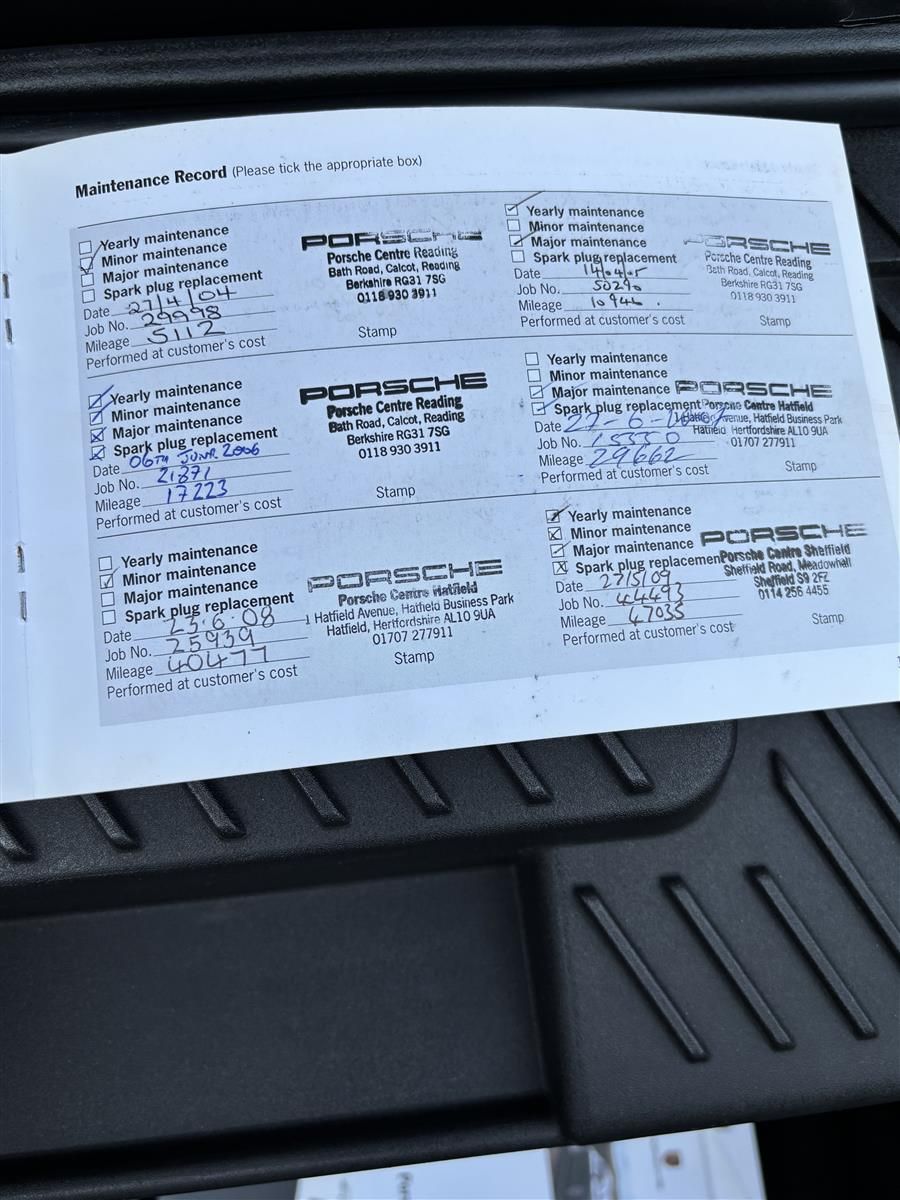 Maintenance Record (Please tick the appropriate box)
Yearly maintenance
Minor maintenance
Major maintenance
Spark plug replacement
Date 27/4/04
Job No. 29998
Mileage 5112
Performed at customer's cost
PORSCHE
Porsche Centre Reading
Bath Road, Calcot, Reading
Berkshire RG31 7SG
0118 930 3911
Stamp
Yearly maintenance
Minor maintenance
Major maintenance
Spark plug replacement
Date 14/04/05
Job No. 50290
Mileage 10946
Performed at customer's cost
PORSCHE
Porsche Centre Reading
Bath Road, Calcot, Reading
Berkshire RG31 7SG
0118 930 3911
Stamp
Yearly maintenance
Minor maintenance
Major maintenance
Spark plug replacement
Date 06TH JUNE 2006
Job No. 21871
Mileage 17223
Performed at customer's cost
PORSCHE
Porsche Centre Reading
Bath Road, Calcot, Reading
Berkshire RG31 7SG
0118 930 3911
Stamp
Yearly maintenance
Minor maintenance
Major maintenance
Spark plug replacement
Date 27-6-
Job No. 15550
Mileage 29662
Performed at customer's cost
PORSCHE
Porsche Centre Hatfield
Avenue, Hatfield Business Park
Hatfield Hertfordshire AL10 9UA
01707 277911
Stamp
Yearly maintenance
Minor maintenance
Major maintenance
Spark plug replacement
Date 23.6.08
Job No. 25939
Mileage 40477
Performed at customer's cost
PORSCHE
Porsche Centre Hatfield
1 Hatfield Avenue, Hatfield Business Park
Hatfield, Hertfordshire AL10 9UA
01707 277911
Stamp
Yearly maintenance
Minor maintenance
Major maintenance
Spark plug replacemen
Date 27/5/09
Job No. 44493
Mileage 47035
Performed at customer's cost
PORSCHE
Porsche Centre Sheffield
Sheffield Road, Meadowhall
Sheffield S9 2FZ
0114 256 4455
Stamp